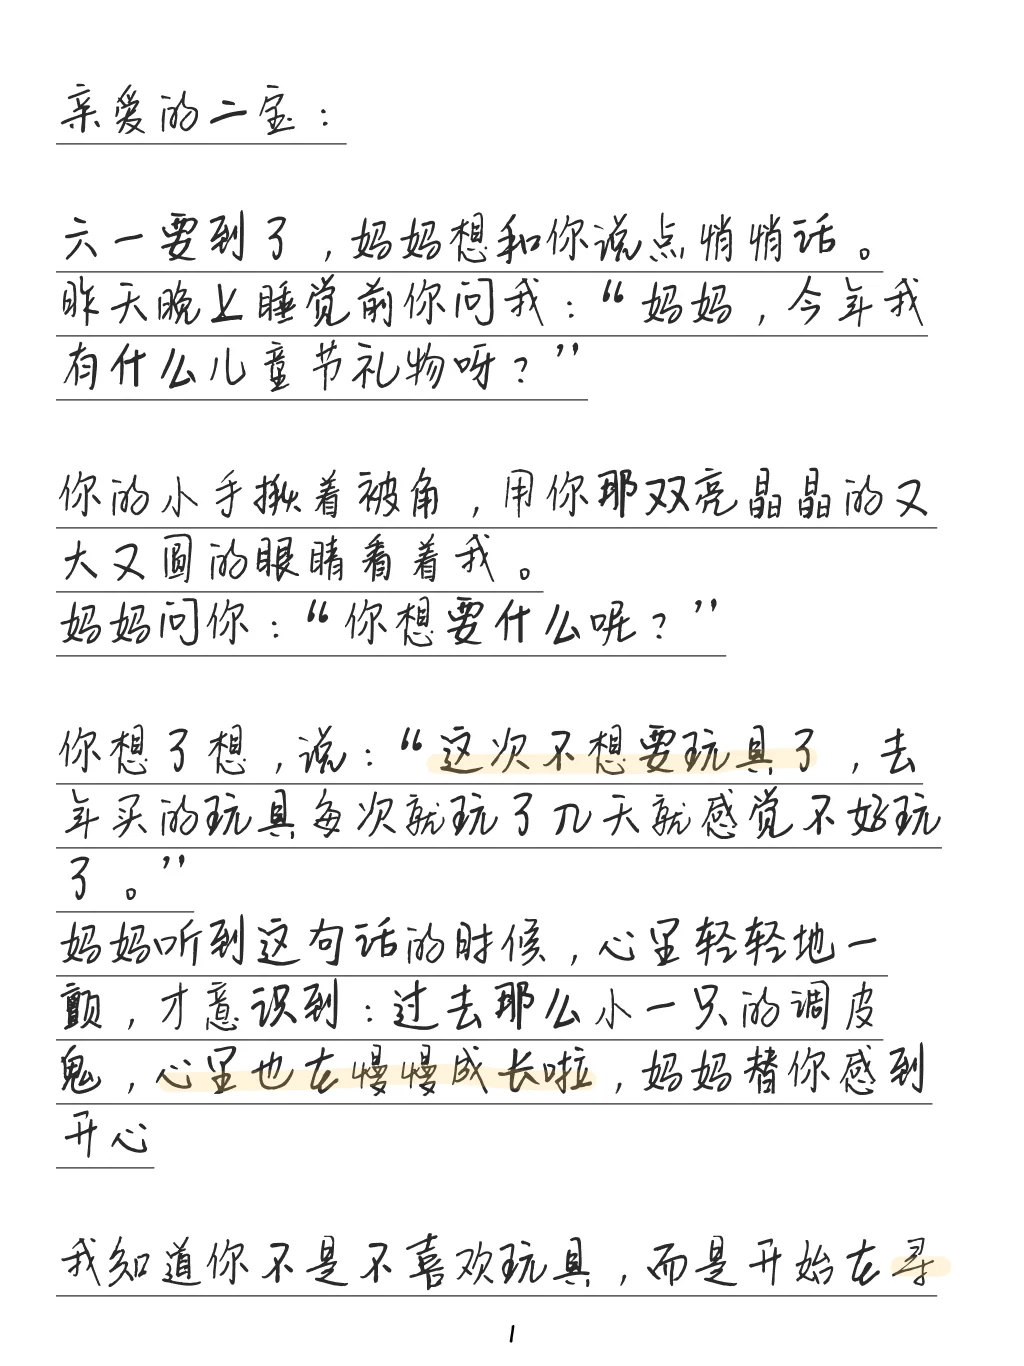 亲爱的二宝：
六一要到了，妈妈想和你说点悄悄话。
昨天晚上睡觉前你问我：“妈妈，今年我
有什么儿童节礼物呀？”
你的小手揪着被角，用你那双亮晶晶的又
大又圆的眼睛看着我。
妈妈问你：“你想要什么呢？”
你想了想，说：“这次不想要玩具了，去
年买的玩具每次就玩了几天就感觉不好玩
了。”
妈妈听到这句话的时候，心里轻轻地一
颤，才意识到：过去那么小一只的调皮
鬼，心里也在慢慢成长啦，妈妈替你感到
开心
我知道你不是不喜欢玩具，而是开始在寻
1